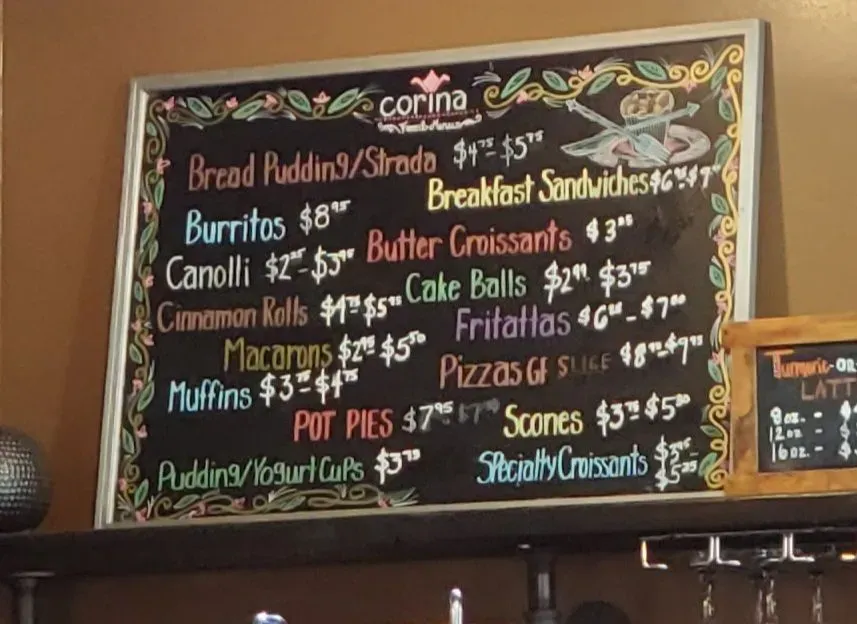 corina
Bread Pudding/Strada $4.75 - $5.75
Breakfast Sandwiches $6
Burritos $8.95
Butter Croissants $3
Canolli $2 - $3
Cake Balls $2 $3.75
Cinnamon Rolls $4.75 - $5
Fritattas $6 - $7
Macarons $2 $5.50
Pizzas GF SLICE $8 - $9
Muffins $3 - $4.75
POT PIES $7.95
Scones $3.75 $5
Pudding/Yogurt Cups $3
Specialty Croissants $3
$5
Tumeric-OR
LATT
8oz. -
12oz -
16oz. -